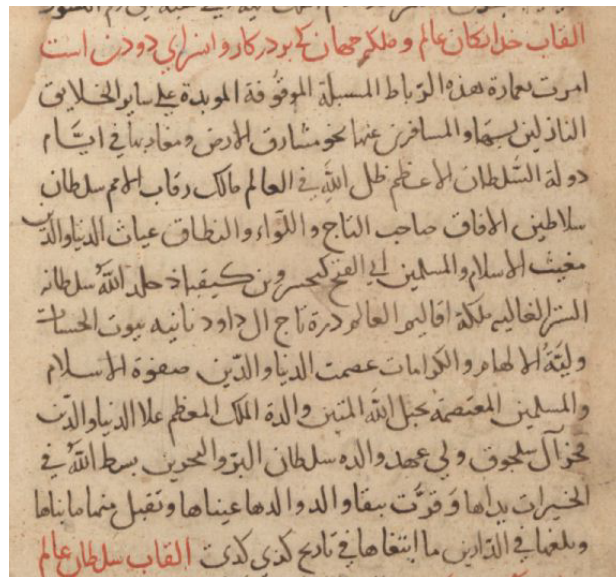 القاب خداوندکان عالم و ملکه جهان که بر در کاروانسرای دودن است
امرت بعمارة هذه الرباط المسبلة الموقوفة الموبدة علی سایر الخلایق
النازلین بها والمسافرین عنها نحو مشارق الارض ومغاربها فی ایّام
دولة السّلطان الاعظم ظل الله فی العالم مالک رقاب الامم سلطان
سلاطین الافاق صاحب التاج واللّواء والنطاق غیاث الدنیا والدین
مغیث الاسلام والمسلمین ابی الفتح کیخسرو بن کیقباذ خلد الله سلطانه
الستر العالیه ملکة اقالیم العالم درة تاج ال داود بانیه بیوت الحسنات
ولیّة الالهام والکرامات عصمت الدنیا والدّین صفوة الاسلام
والمسلمین المعتصمة بحبل الله المتین والدة الملک المعظم علا الدنیا والدین
فخر آل سلجوق ولی عهد والده سلطان البرّ والبحرین بسط الله فی
الخیرات یداها وقرّت ببقا والدها عیناها وتقبل منها ما بناها
وبلغها فی الدّارین ما ابتغاها فی تاریخ کذی کذی القاب سلطان عالم